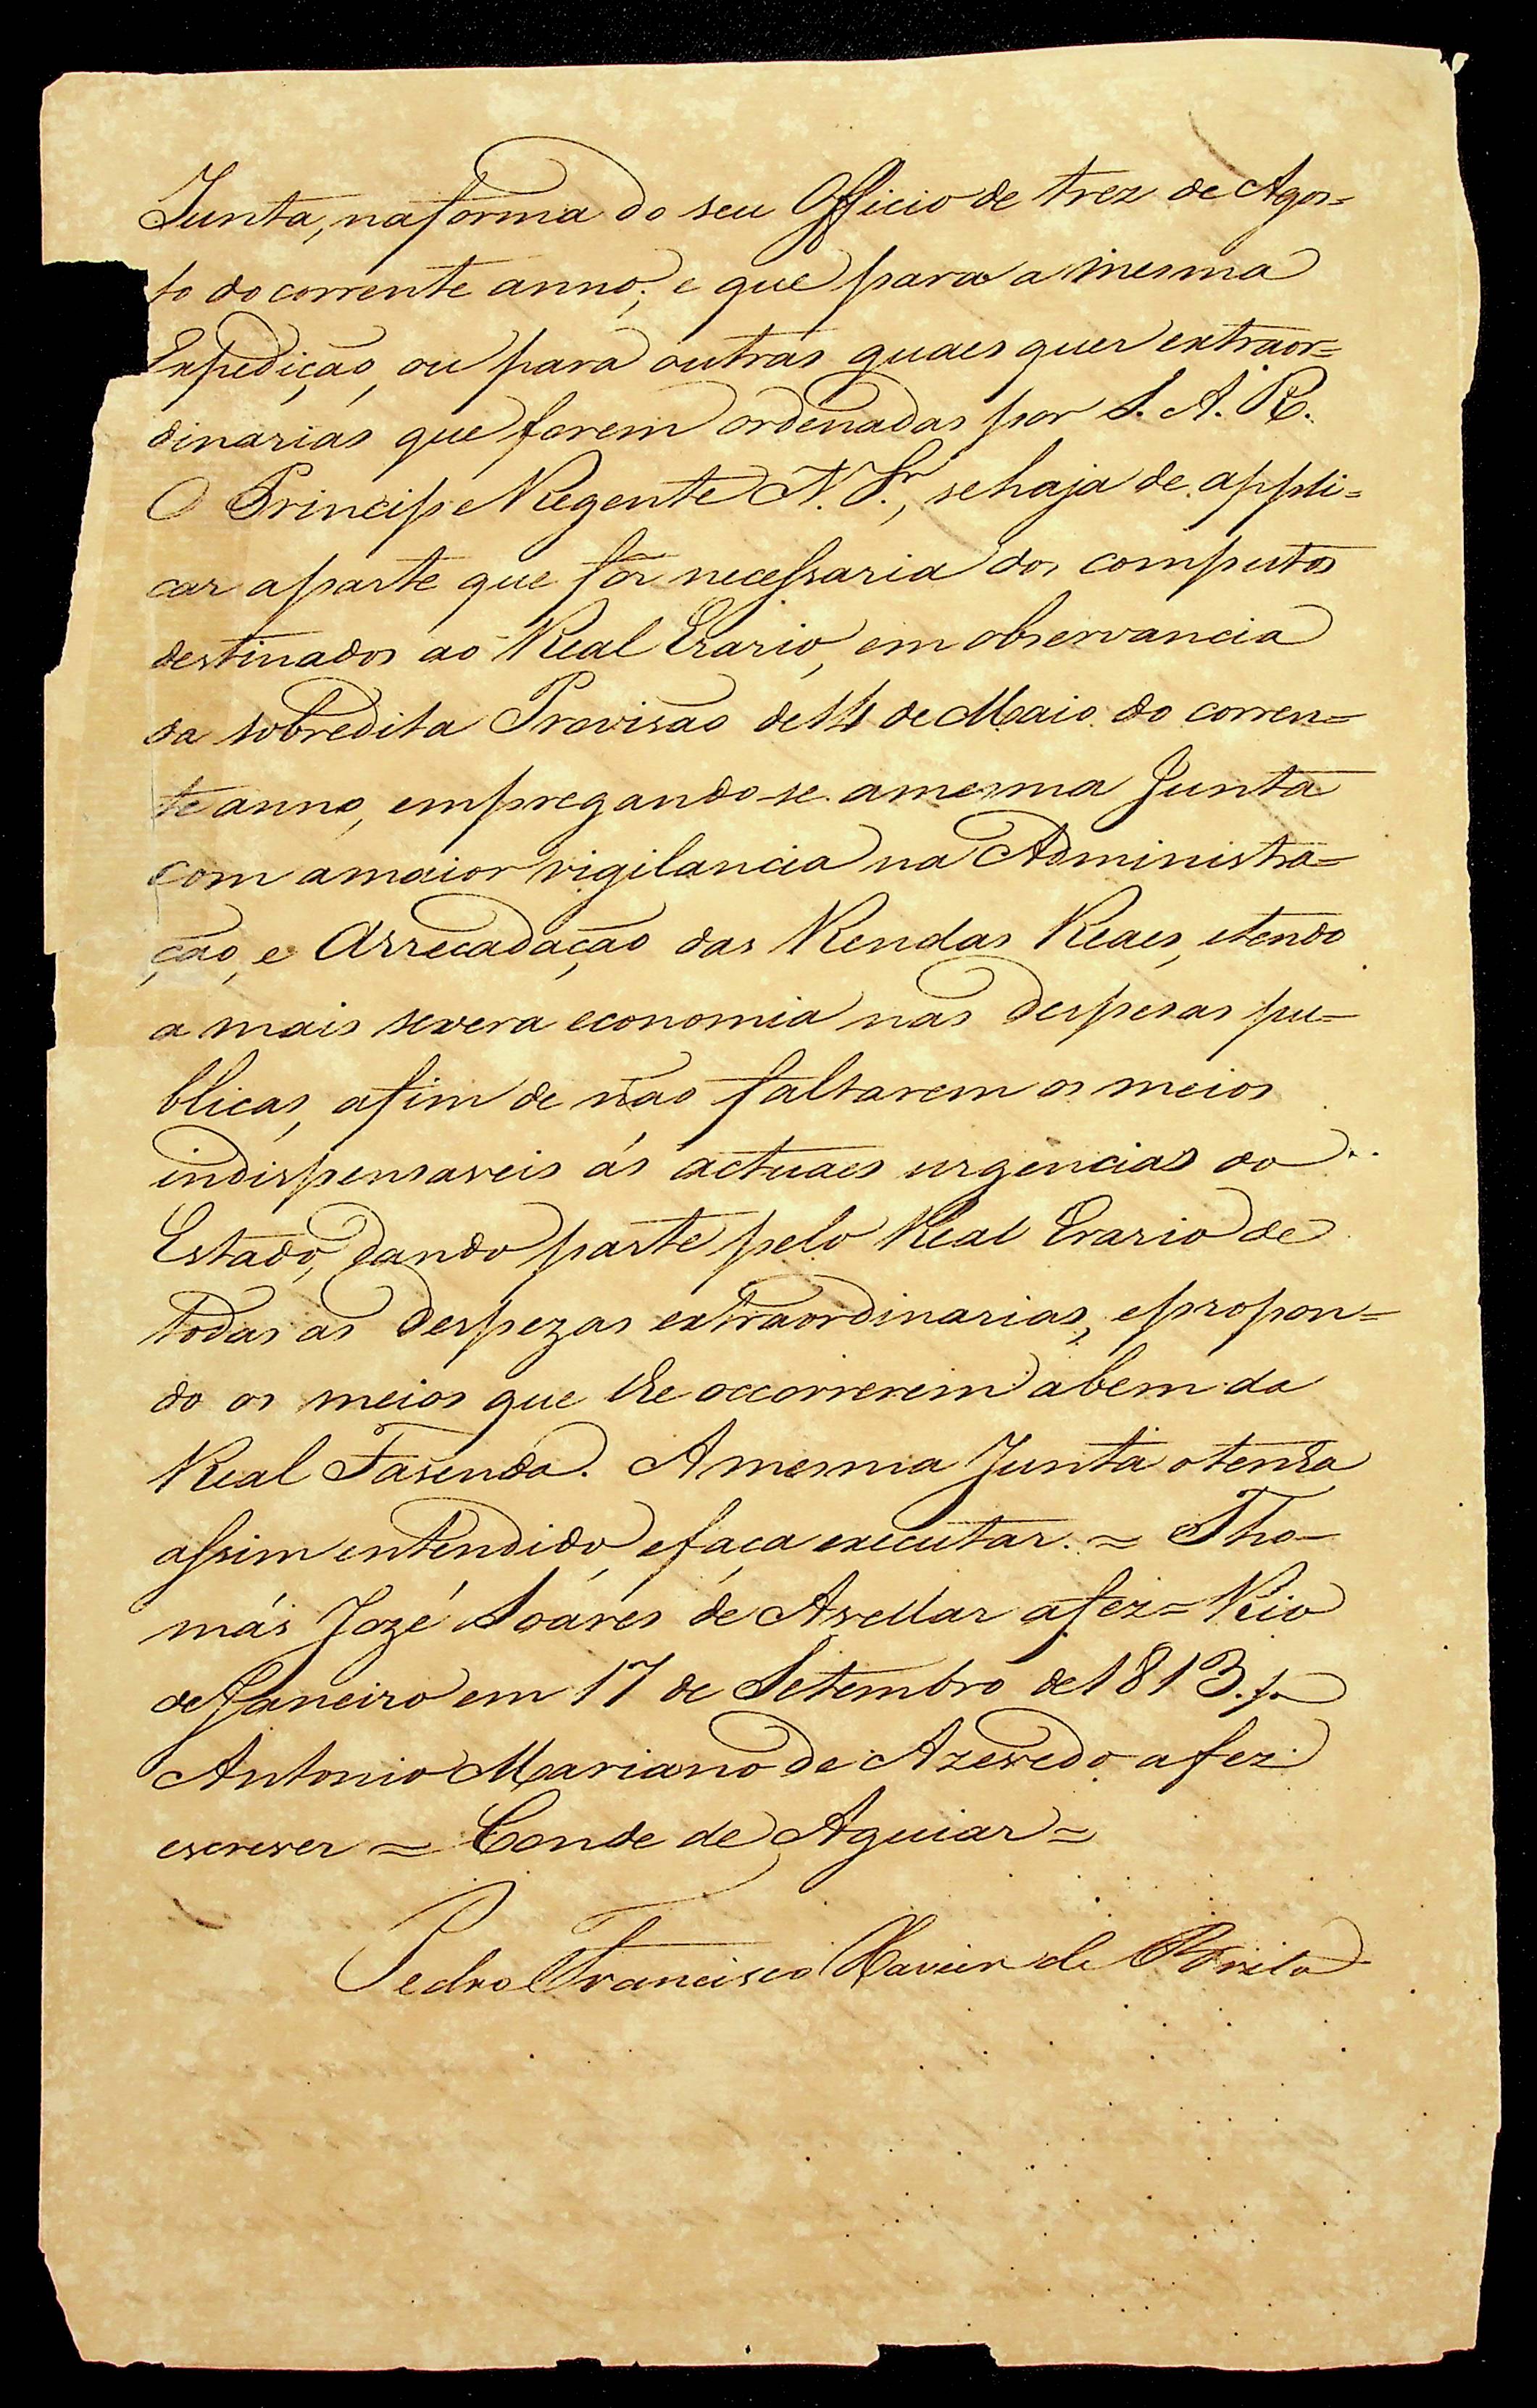 Junta, na forma do seu Officio de trez de Agos=
to do corrente anno; e que para a mesma
Expedição, ou para outras quaes quer extraor=
dinarias que forem ordenadas por S. A. R.
O Principe Regente N. Sr., se haja de appli=
car a parte que fôr necessaria dos computos
destinados ao Real Erario, em observancia
da sobredita Provisão de 14 de Maio do corren=
te anno, empregando-se a mesma Junta
com a maior vigilancia na Administra=
ção, e Arrecadação das Rendas Reaes, e tendo
a mais severa economia nas despesas pu=
blicas, a fim de não faltarem os meios
indispensaveis ás actuaes urgencias do
Estado, dando parte pelo Real Erario de
todas as despezas extraordinarias, e propon=
do os meios que lhe occorrerem a bem da
Real Fasenda. A mesma Junta o tenha
assim entendido, e faça executar. = Tho-
más Jozé Soáres de Avellar a fez = Rio
de Janeiro em 17 de Setembro de 1813.
Antonio Mariano de Azevedo a fez
escrever = Conde de Aguiar =
Pedro Francisco Xavier de Brito